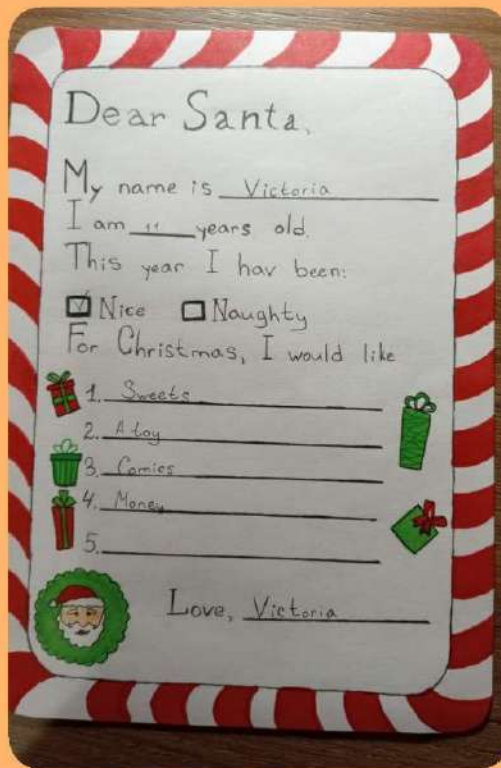 Dear Santa,
My name is Victoria
I am 11 years old.
This year I hav been:
Nice Naughty
For Christmas, I would like
1. Sweets
2. A toy
3. Comics
4. Money
5.
Love, Victoria